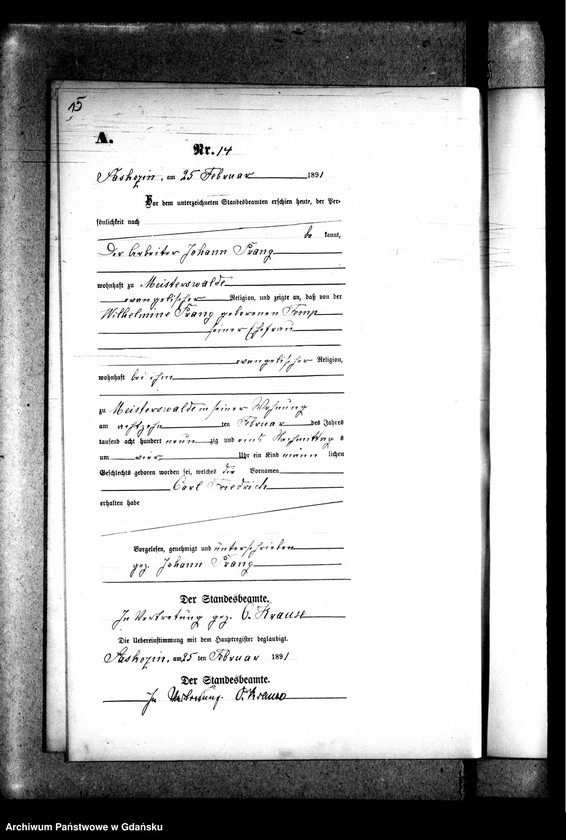 15
A.
Nr. 14
am 25 Februar 1891
Vor dem unterzeichneten Standesbeamten erschien heute, der Per-
sönlichkeit nach
be kannt,
Der Arbeiter Johann Prang
wohnhaft zu Meisterswalde
evangelischer Religion, und zeigte an, daß von der
Wilhelmine Prang geborenen
seiner Ehefrau
evangelischer Religion,
wohnhaft bei ihm
zu Meisterswalde in seiner Wohnung
am achtzehn ten Februar des Jahres
tausend acht hundert neun zig und eins Nachmittag s
um vier Uhr ein Kind männ lichen
Geschlechts geboren worden sei, welches die Vornamen
Carl Friedrich
erhalten habe
Vorgelesen, genehmigt und unterschrieben
gez. Johann Prang
Der Standesbeamte.
In Vertretung gez. O. Krause
Die Uebereinstimmung mit dem Hauptregister beglaubigt.
am 25 ten Februar 1891
Der Standesbeamte.
In Vertretung. O. Krause
Archiwum Państwowe w Gdańsku